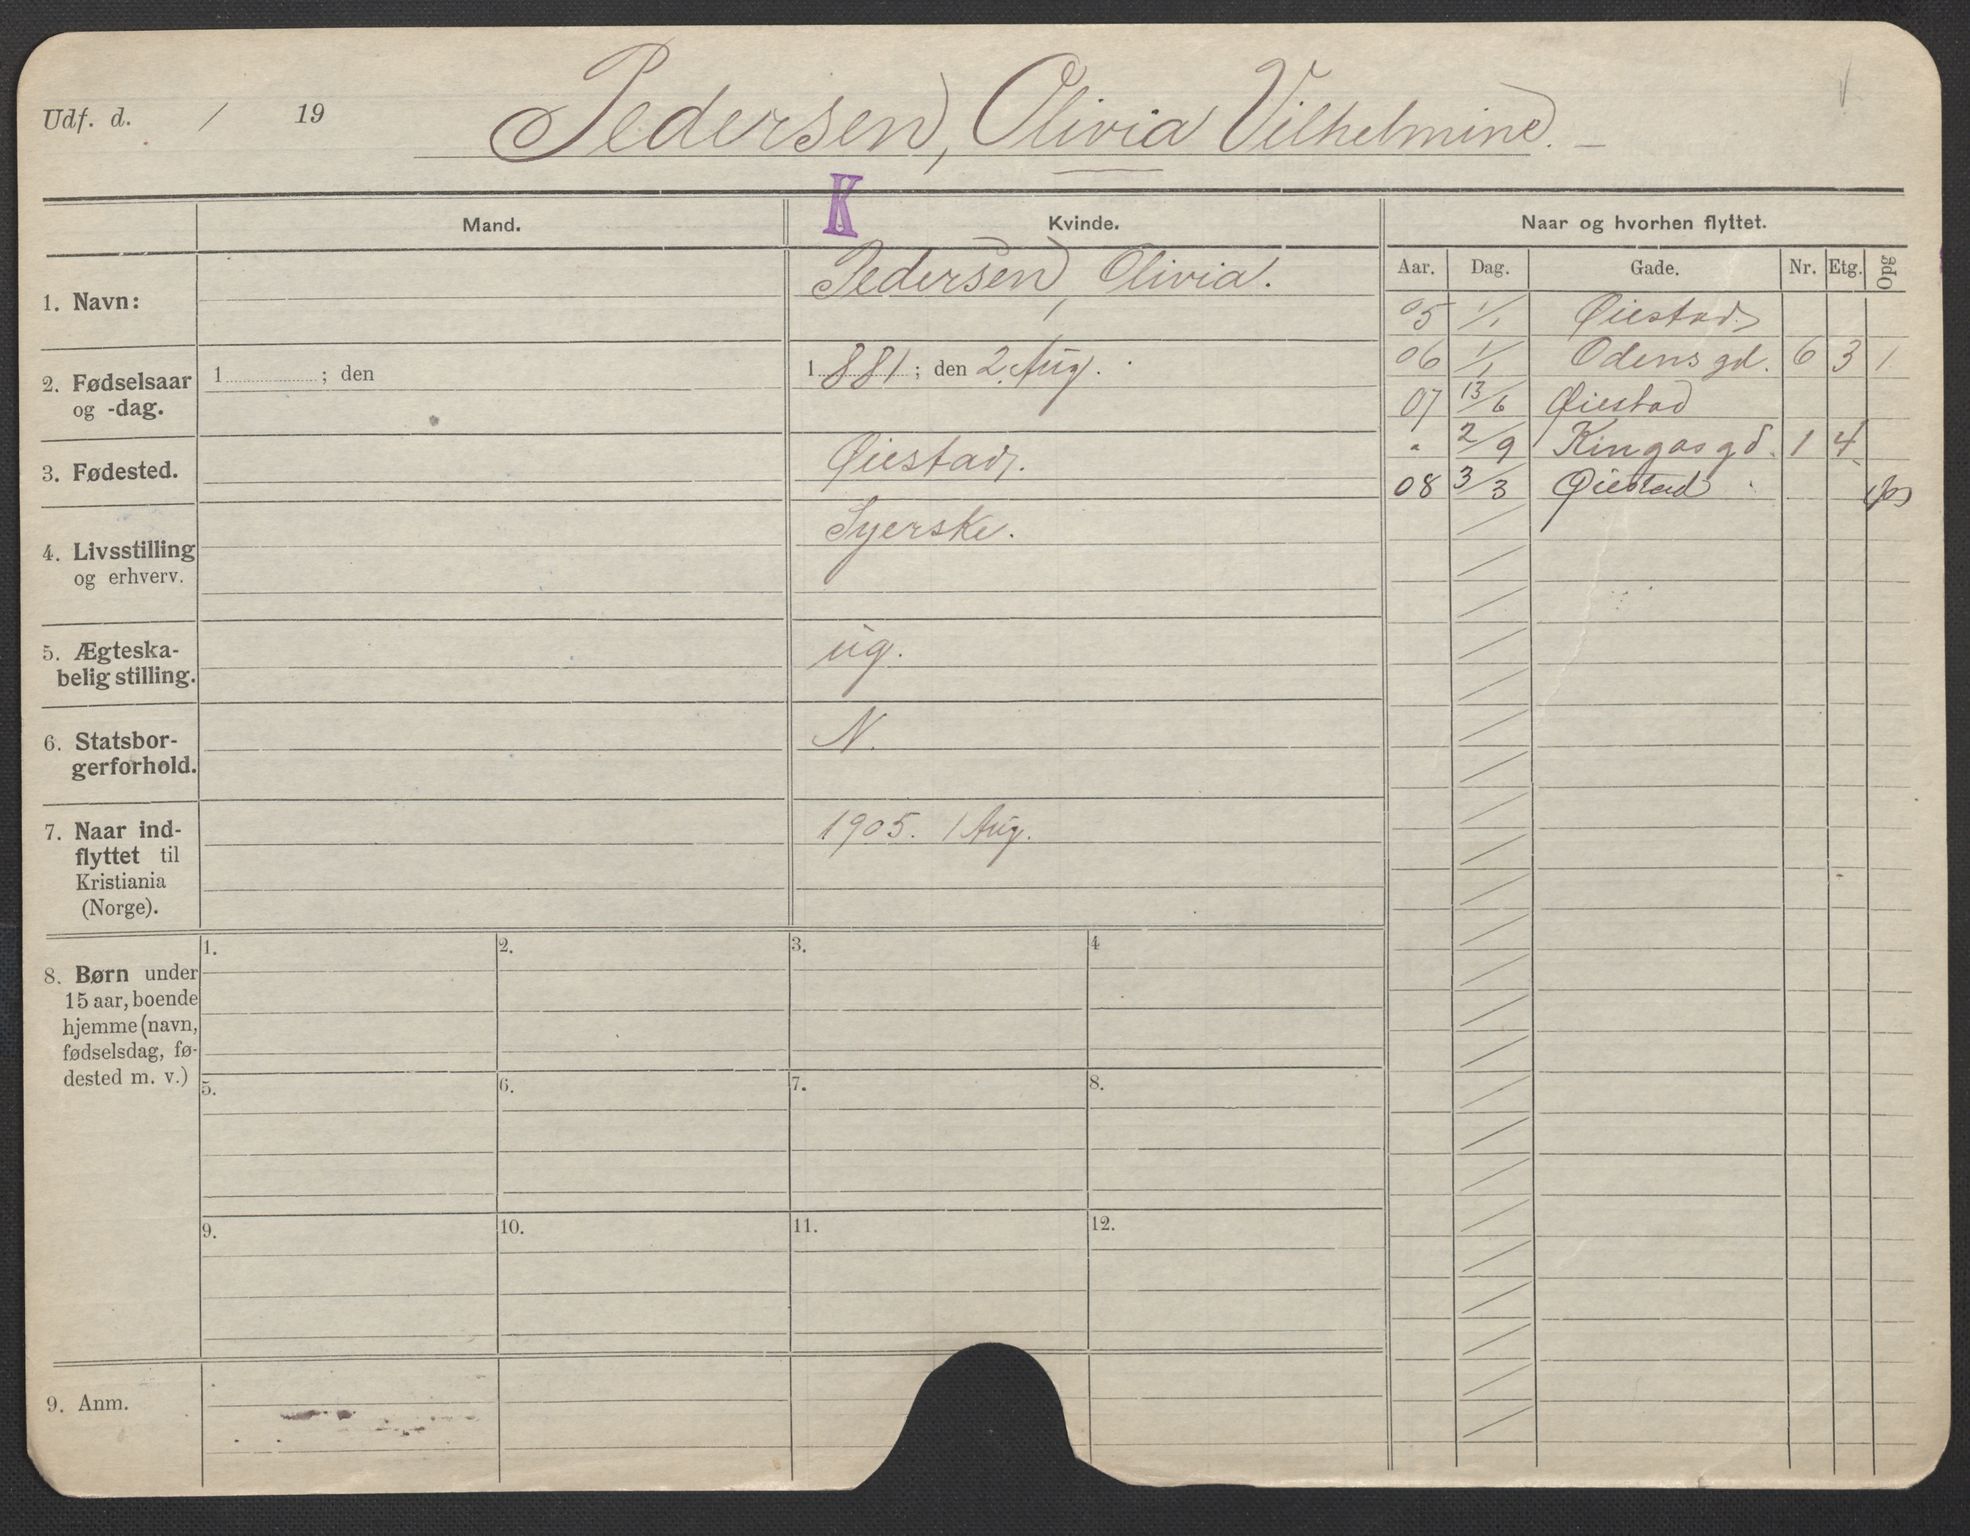 Udf. d. / 19 Pedersen, Olivia Vilhelmine. –
K
Mand. Kvinde. Naar og hvorhen flyttet.
Aar. Dag. Gade. Nr. Etg. Opg
1. Navn: Pedersen, Olivia.
2. Fødselsaar og -dag. 1 ; den 1881 ; den 2. Aug.
3. Fødested. Øiestad.
4. Livsstilling og erhverv. Syerske.
5. Ægteska-
belig stilling. ug.
6. Statsbor-
gerforhold. N.
7. Naar ind-
flyttet til
Kristiania
(Norge). 1905. 1 Aug.
05 1/1 Øiestad
06 1/1 Odens gd. 6 3 1
07 13/6 Øiestad
" 2/9 Kingos gd. 1 4
08 3/3 Øiestad
8. Børn under
15 aar, boende
hjemme (navn,
fødselsdag, fø-
dested m. v.)
1. 2. 3. 4
5. 6. 7. 8.
9. 10. 11. 12.
9. Anm.